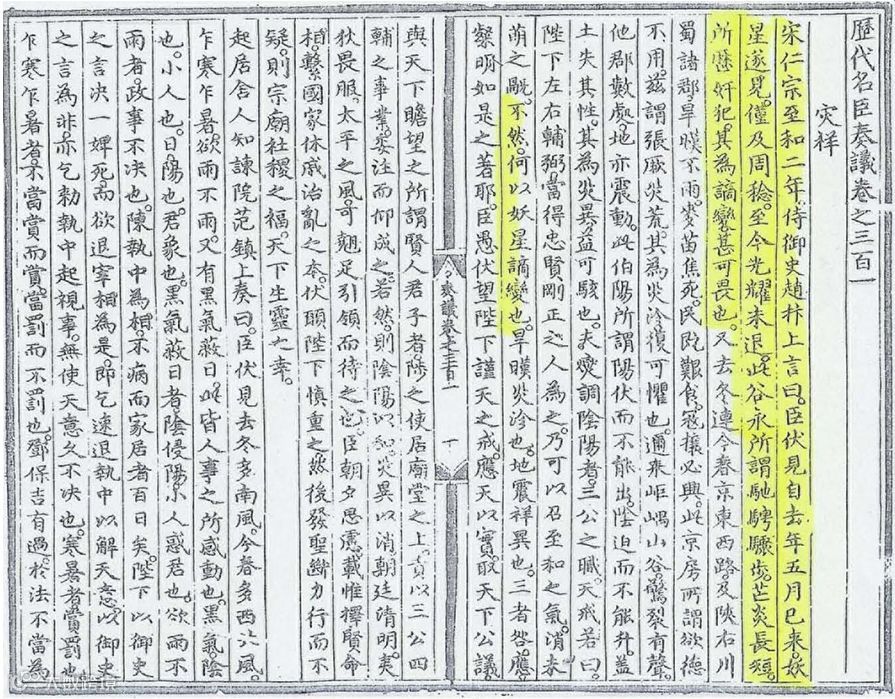 歷代名臣奏議卷之三百一
災祥
宋仁宗至和二年侍御史趙抃上言曰臣伏見自去年五月已來妖
星遂見僅及周稔至今光耀未退此谷永所謂馳騁驟步芒炎長短
所歷奸犯其為謫變甚可畏也又去冬連今春京東西路及陝右川
蜀諸郡旱暵不雨麥苗焦死民既艱食寇攘必興此京房所謂欲德
不用茲謂張厥災荒其為災沴復可懼也邇來岠嵎山谷驚裂有聲
他郡數處地亦震動此伯陽所謂陽伏而不能出陰迫而不能升蓋
土失其性其為災異益可駭也夫燮調陰陽者三公之職天戒若曰
陛下左右輔弼當得忠賢剛正之人為之乃可以召至和之氣消未
萌之眚不然何以妖星謫變也旱暵災沴也地震祥異也三者咎應
粲明如是之著耶臣愚伏望陛下謹天之戒應天以實取天下公議
奏議卷之三百一
一
與天下瞻望之所謂賢人君子者陟之使居廟堂之上責以三公四
輔之事業委注而仰成之若然則陰陽以和災異以消朝廷清明夷
狄畏服太平之風可翹足引領而待之也臣朝夕思慮載惟擇賢命
相繫國家休戚治亂之本伏願陛下慎重之然後發聖斷力行而不
疑則宗廟社稷之福天下生靈之幸
起居舍人知諫院范鎮上奏曰臣伏見去冬多南風今春多西北風
乍寒乍暑欲雨不雨又有黑氣蔽日此皆人事之所感動也黑氣陰
也小人也日陽也君象也黑氣蔽日者陰侵陽小人惑君也欲雨不
雨者政事不決也陳執中為相不病而家居者百日矣陛下以御史
之言決一婢死而欲退宰相為是即乞速退執中以解天意以御史
之言為非亦乞勅執中起視事無使天意久不決也寒暑者賞罰也
乍寒乍暑者不當賞而賞當罰而不罰也鄧保吉有過於法不當為